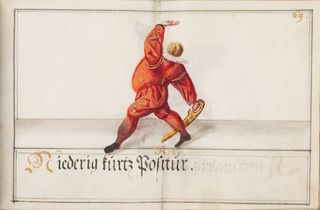 69.
Niederig kurtz Positur.